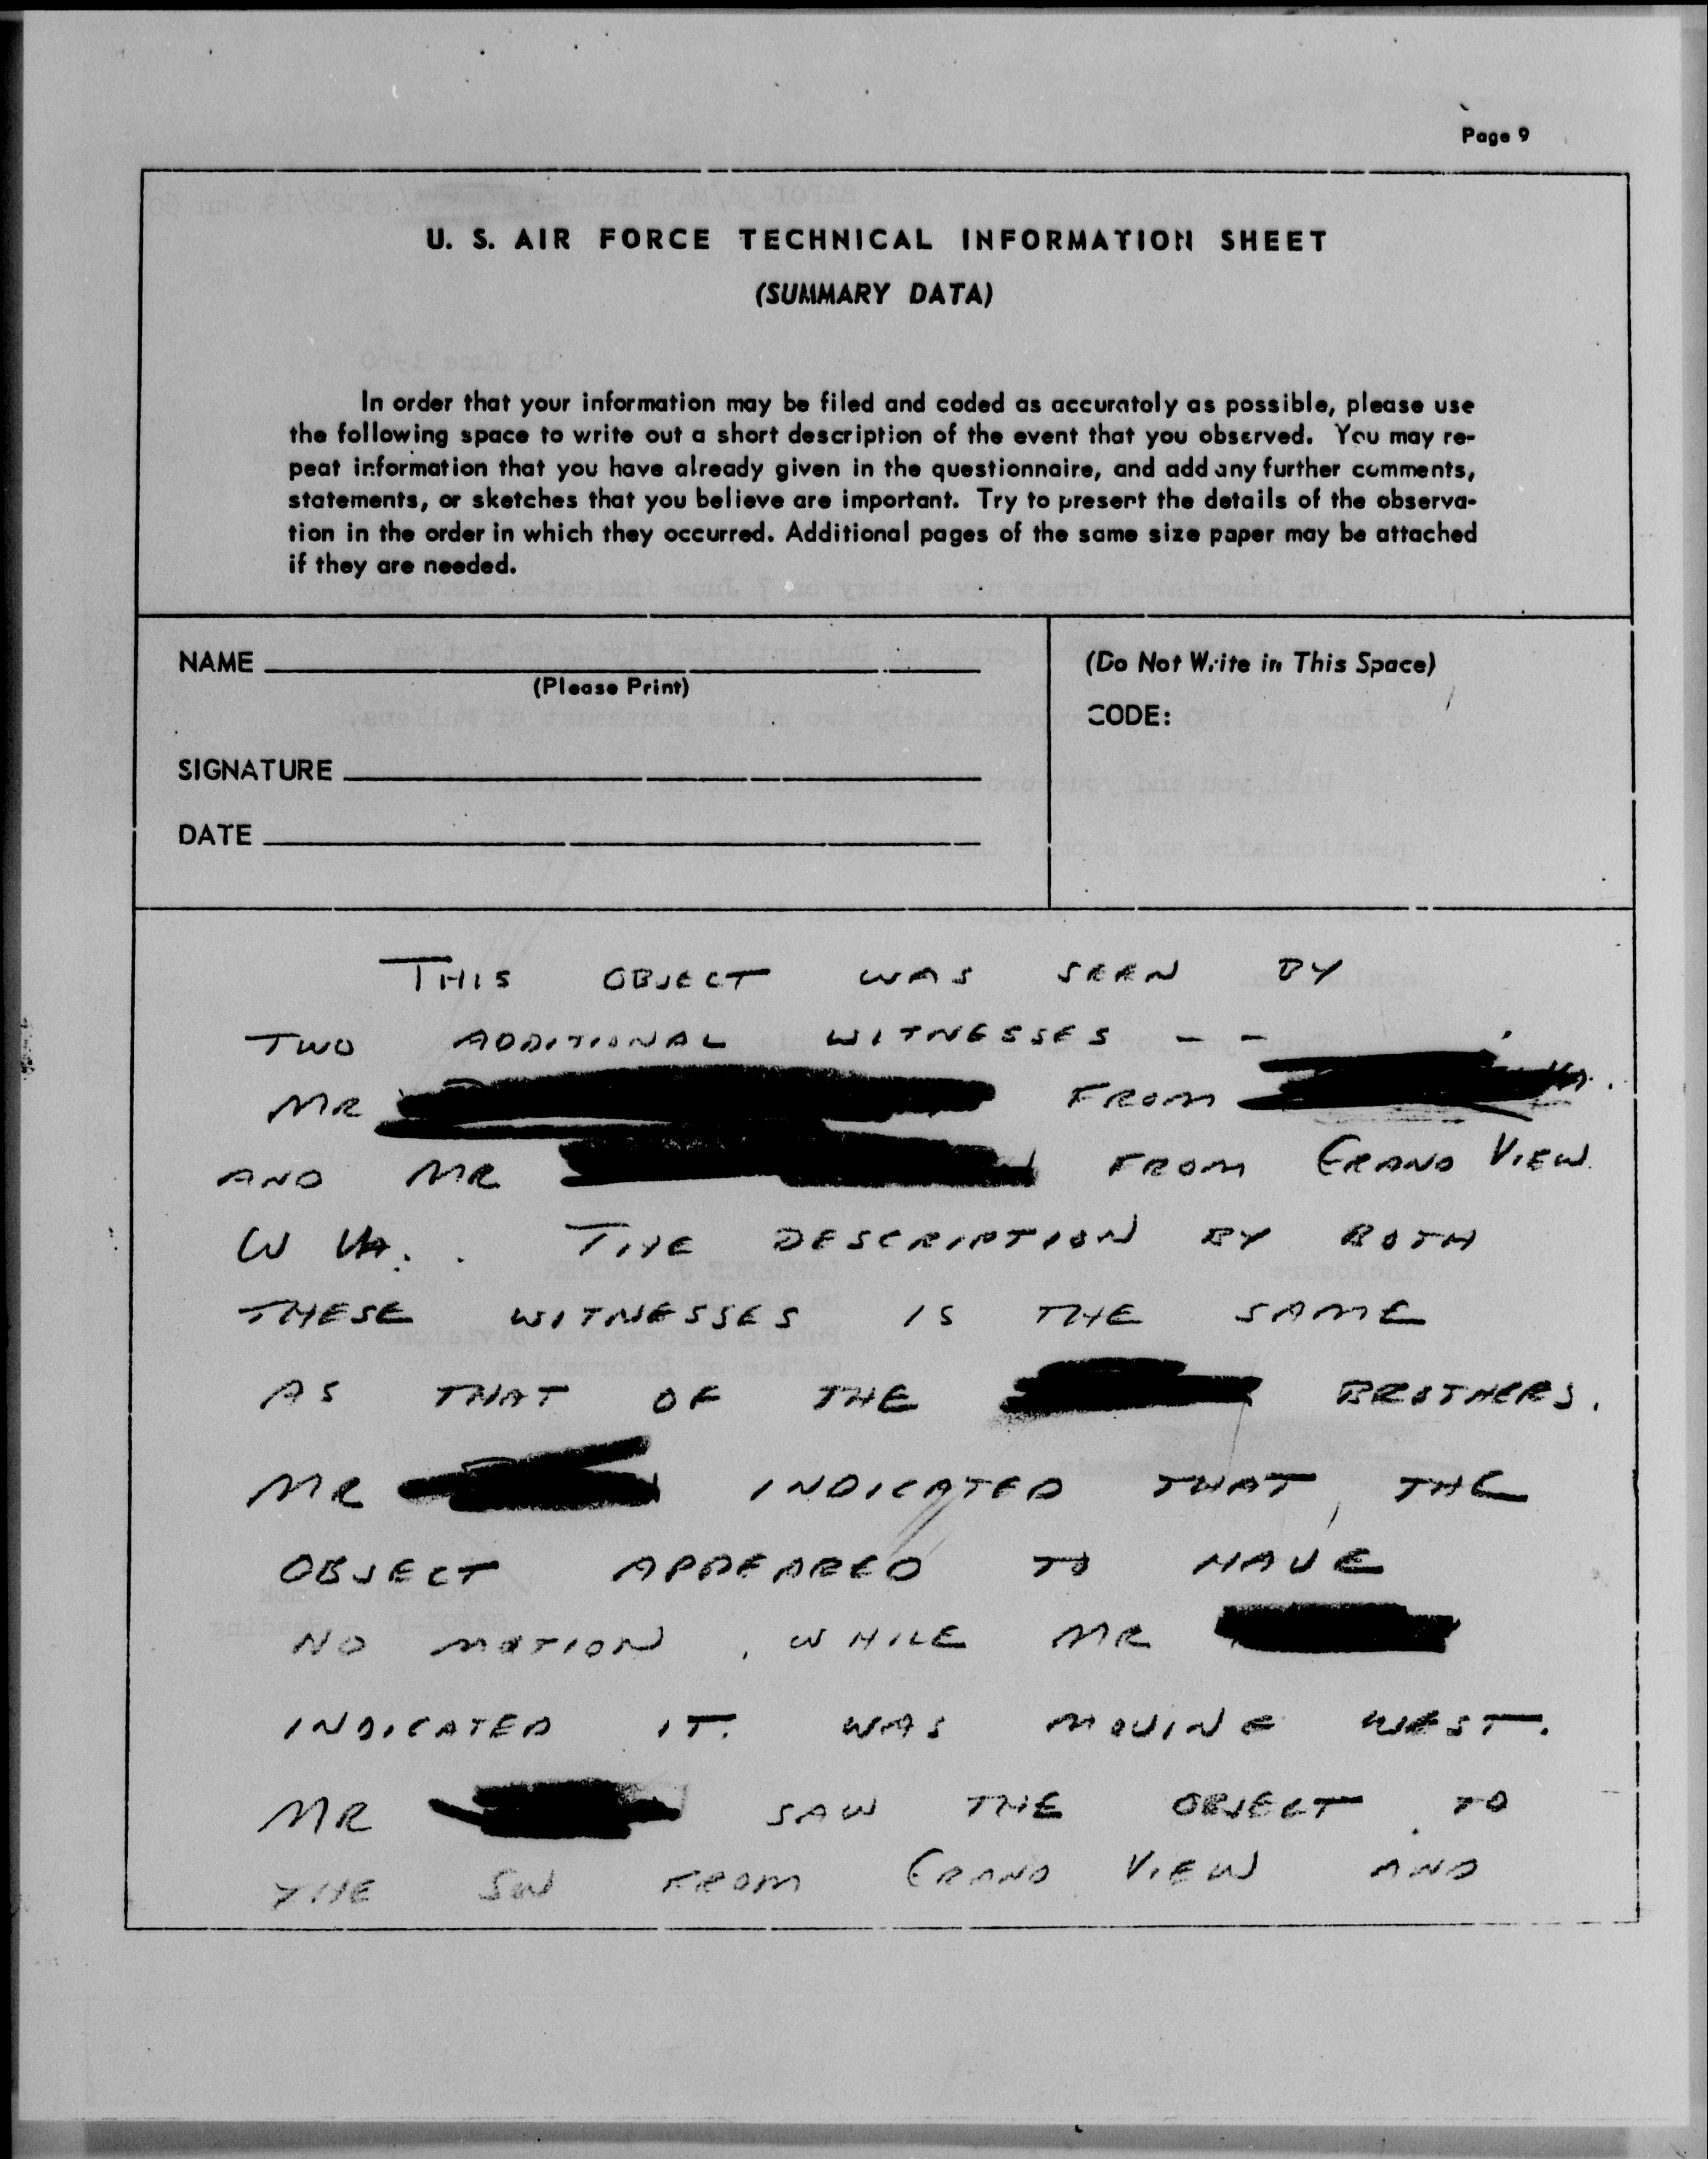 Page 9
U. S. AIR FORCE TECHNICAL INFORMATION SHEET
(SUMMARY DATA)
In order that your information may be filed and coded as accurately as possible, please use
the following space to write out a short description of the event that you observed. You may re-
peat information that you have already given in the questionnaire, and add any further comments,
statements, or sketches that you believe are important. Try to present the details of the observa-
tion in the order in which they occurred. Additional pages of the same size paper may be attached
if they are needed.
NAME
(Please Print)
SIGNATURE
DATE
(Do Not Write in This Space)
CODE:
THIS OBJECT WAS SEEN BY
TWO ADDITIONAL WITNESSES --
MR FROM
AND MR FROM GRAND VIEW
W VA. . THE DESCRIPTION BY BOTH
THESE WITNESSES IS THE SAME
AS THAT OF THE BROTHERS.
MR INDICATED THAT THE
OBJECT APPEARED TO HAVE
NO MOTION, WHILE MR
INDICATED IT WAS MOVING WEST.
MR SAW THE OBJECT TO
THE SW FROM GRAND VIEW AND